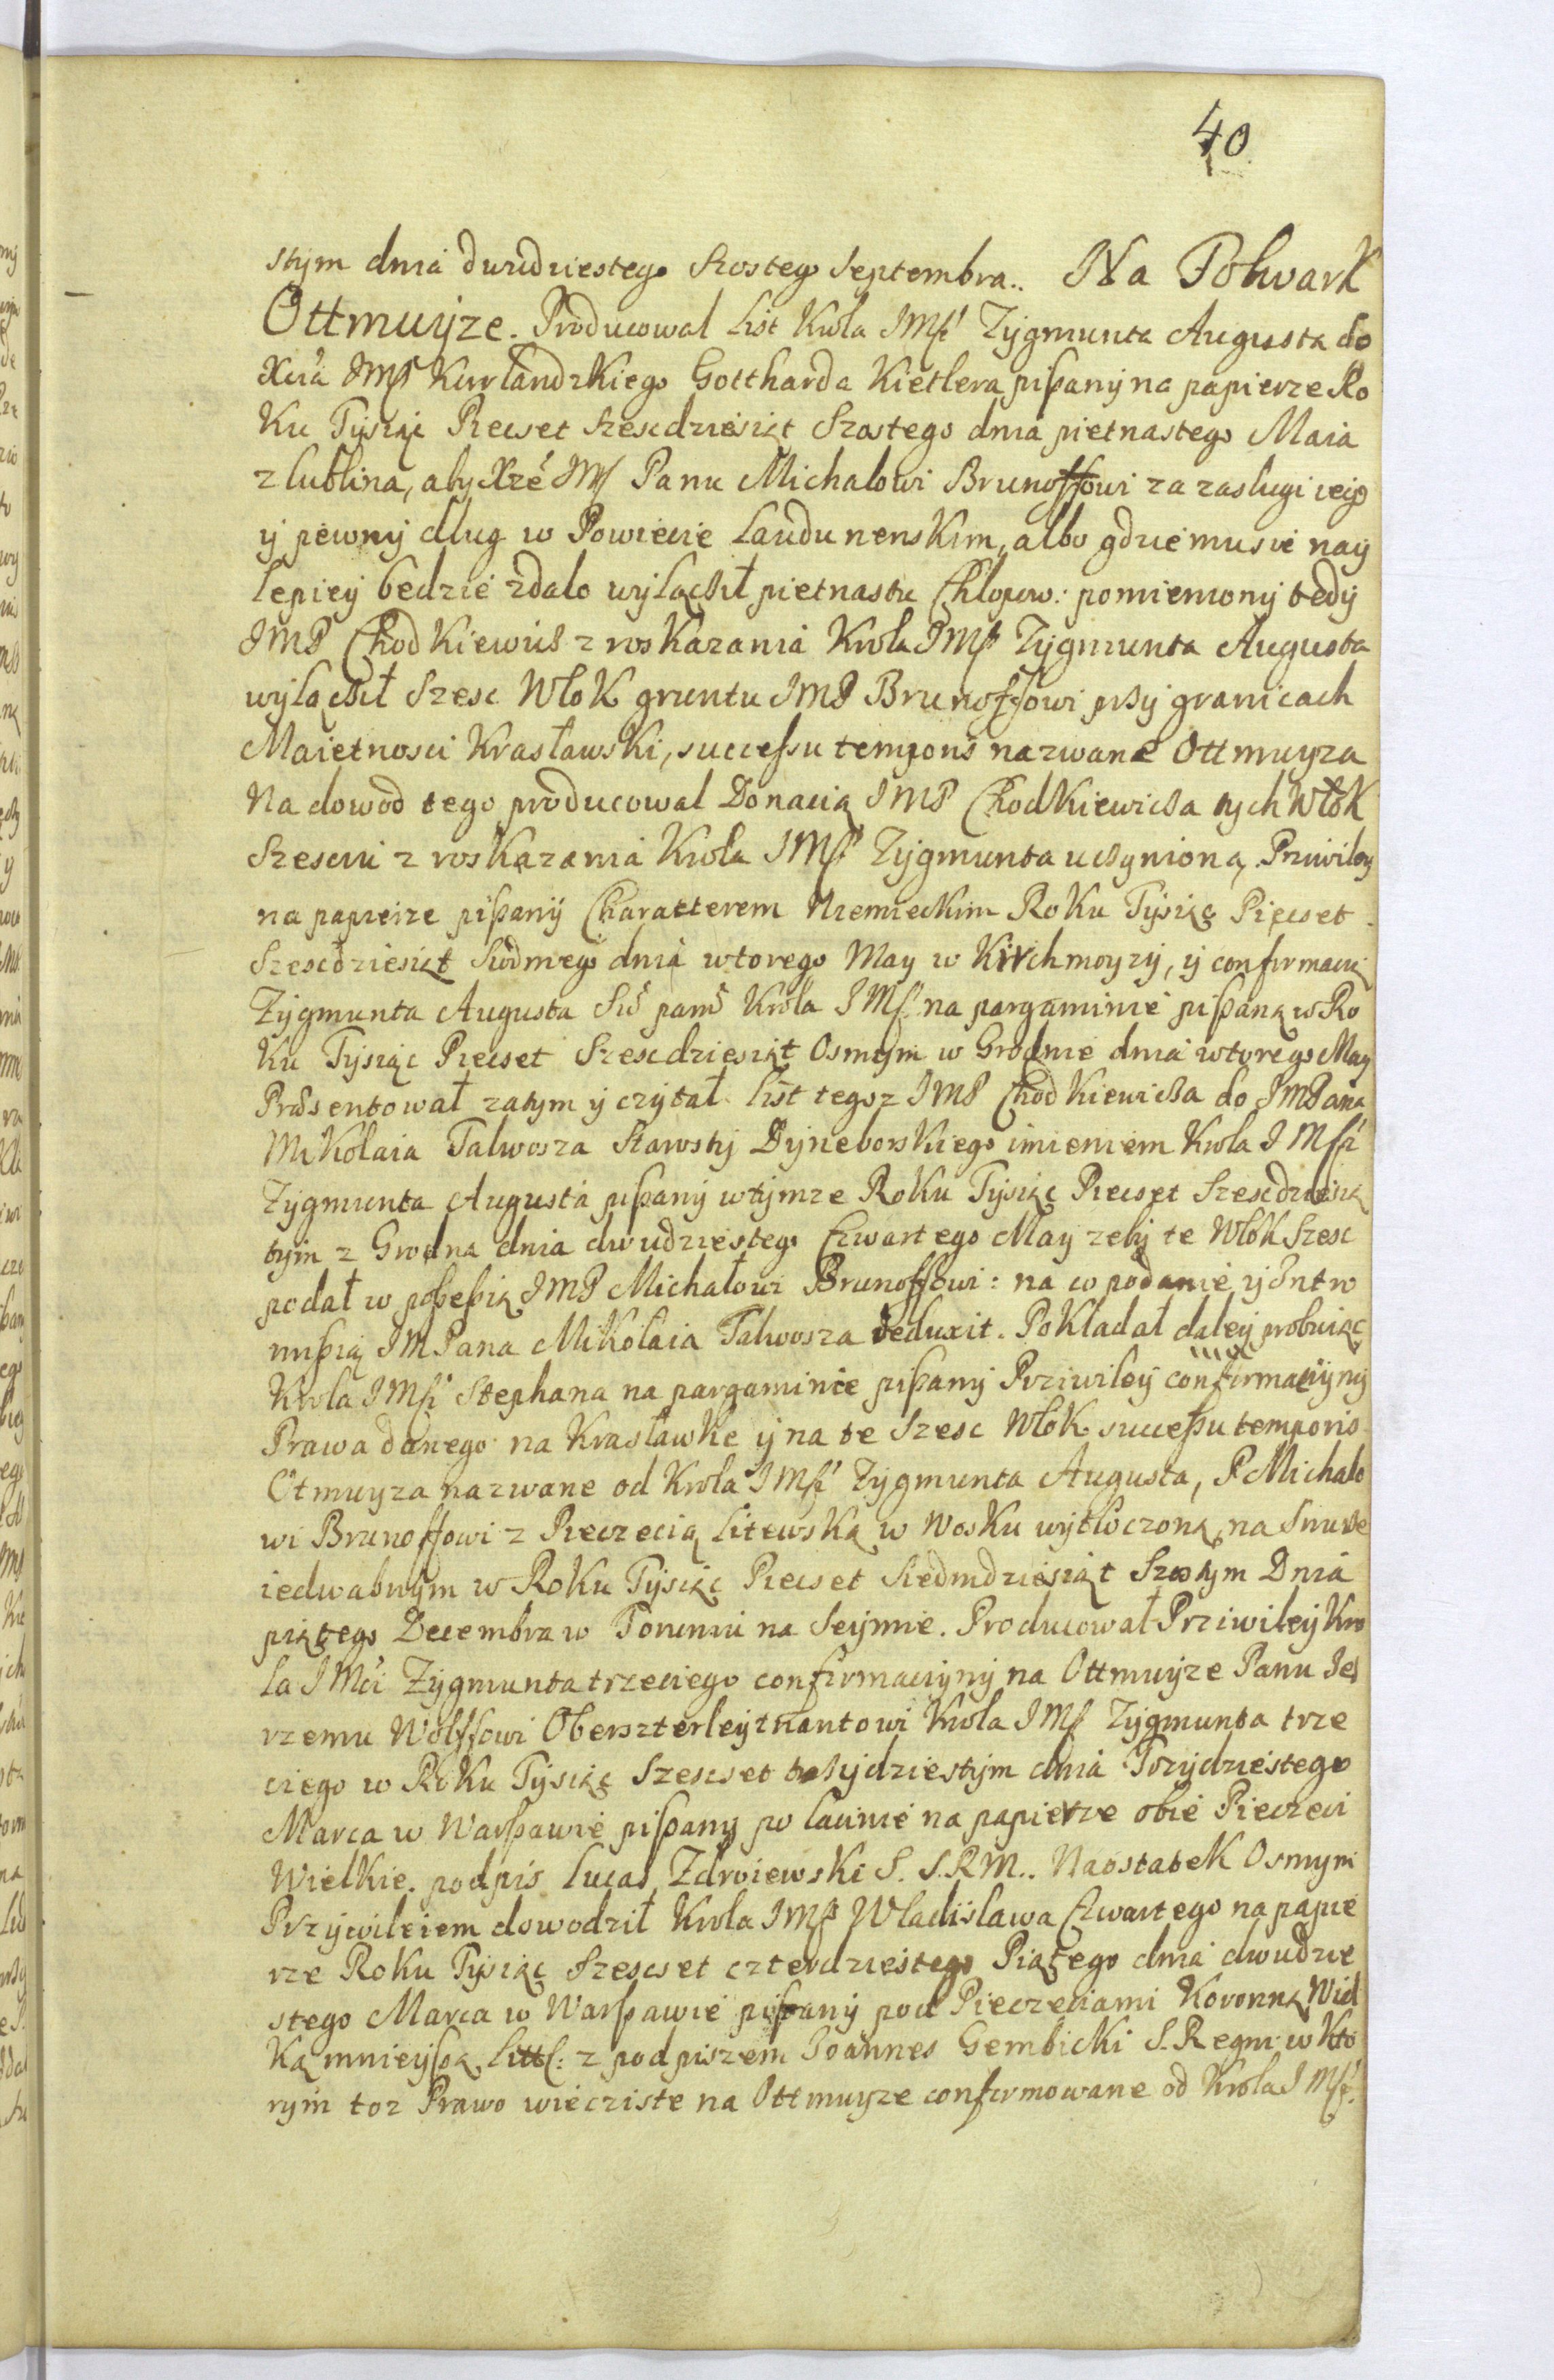 40
stym dnia dwudziestego szostego Septembra.. Na Folwark
Ottmuyze. Producował List Krola JMści Zygmunta Augusta do
Xcia JMP Kurlandzkiego Gottharda Kietlera pißany na papierze Ro
ku Tysiąc Piecset Szescdziesiąt Szostego dnia pietnastego Maia
z lublina, aby Xże JM Panu Michałowi Brunoffowi za zasługi iego
y pewny dług w Powiecie Laudunenskim, albo gdzie mu sie nay
lepiey bedzie zdało wyłączył pietnastu Chłopow: pomieniony tedy
JMP Chodkiewicz z roskazania Krola JMści Zygmunta Augusta
wyłączył Szesc Włok gruntu JMP Brunoffowi przy granicach
Maietnosci Krasławski, successu temporis nazwane Ottmuyza
Na dowod tego producował Donacią JMP Chodkiewicza tych Włok
Szesciu z roskazania Krola JMści Zygmunta uczynioną, Prziwiley
na papierze pißany Charakterem Niemieckim Roku Tysiąc Piecset
Szescdziesiąt Siodmego dnia wtorego May w Kirchmoyzy, y confirmacią
Zygmunta Augusta Krola JMści na pargaminie pißaną w Ro
ku Tysiąc Piecset Szescdziesiąt Osmym w Grodnie dnia wtorego May
Præsentował zatym y czytał List tegoz JMP Chodkiewicza do JMPana
Mikołaia Talwosza Starosty Dyneborskiego imieniem Krola JMści
Zygmunta Augusta pißany w tymze Roku Tysiąc Piecset Szescdziesią
tym z Grodna dnia dwudziestego Czwartego May zeby te Włok Szesc
podał w poßeßią JMP Michałowi Brunoffowi: na co podanie y Intro
mißią JMPana Mikołaia Talwosza deduxit. Pokładał daley probuiąc
Krola JMści Stephana na pargaminie pißany Prziwiley confirmacyiny
Prawa danego na Krasławke y na te Szesc Włok succeßu temporis
Otmuyza nazwane od Krola JMści Zygmunta Augusta, P Michało
wi Brunoffowi z Pieczecią Litewską w Wosku wytłoczoną, na Snurze
iedwabnym w Roku Tysiąc Piecset Siedmdziesiąt Szostym Dnia
piątego Decembra w Toruniu na Seymie. Producował Prziwiley Kro
la JMci Zygmunta trzeciego confirmacyiny na Ottmuyze Panu Je
rzemu Wolffowi Oberszterleytnantowi Krola JMści Zygmunta trze
ciego w Roku Tysiąc Szescset trzydziestym dnia Trzydziestego
Marca w Warßawie pißany po łacinie na papierze obie Pieczeci
Wielkie. podpis Lucas Zdroiewski S. S.R.M.. Naostatek Osmym
Przywileiem dowodził Krola JMści Władisława Czwartego na papie
rze Roku Tysiąc Szescset czterdziestego Piątego dnia dwudzie
stego Marca w Warßawie pißany pod Pieczeciami Koronną Wiel
ką mnieyßą Litts: z podpiszem Joannes Gembicki S. Regni w kto
rym toz Prawo wiecziste na Ottmuyze confirmowane od Krola JMści